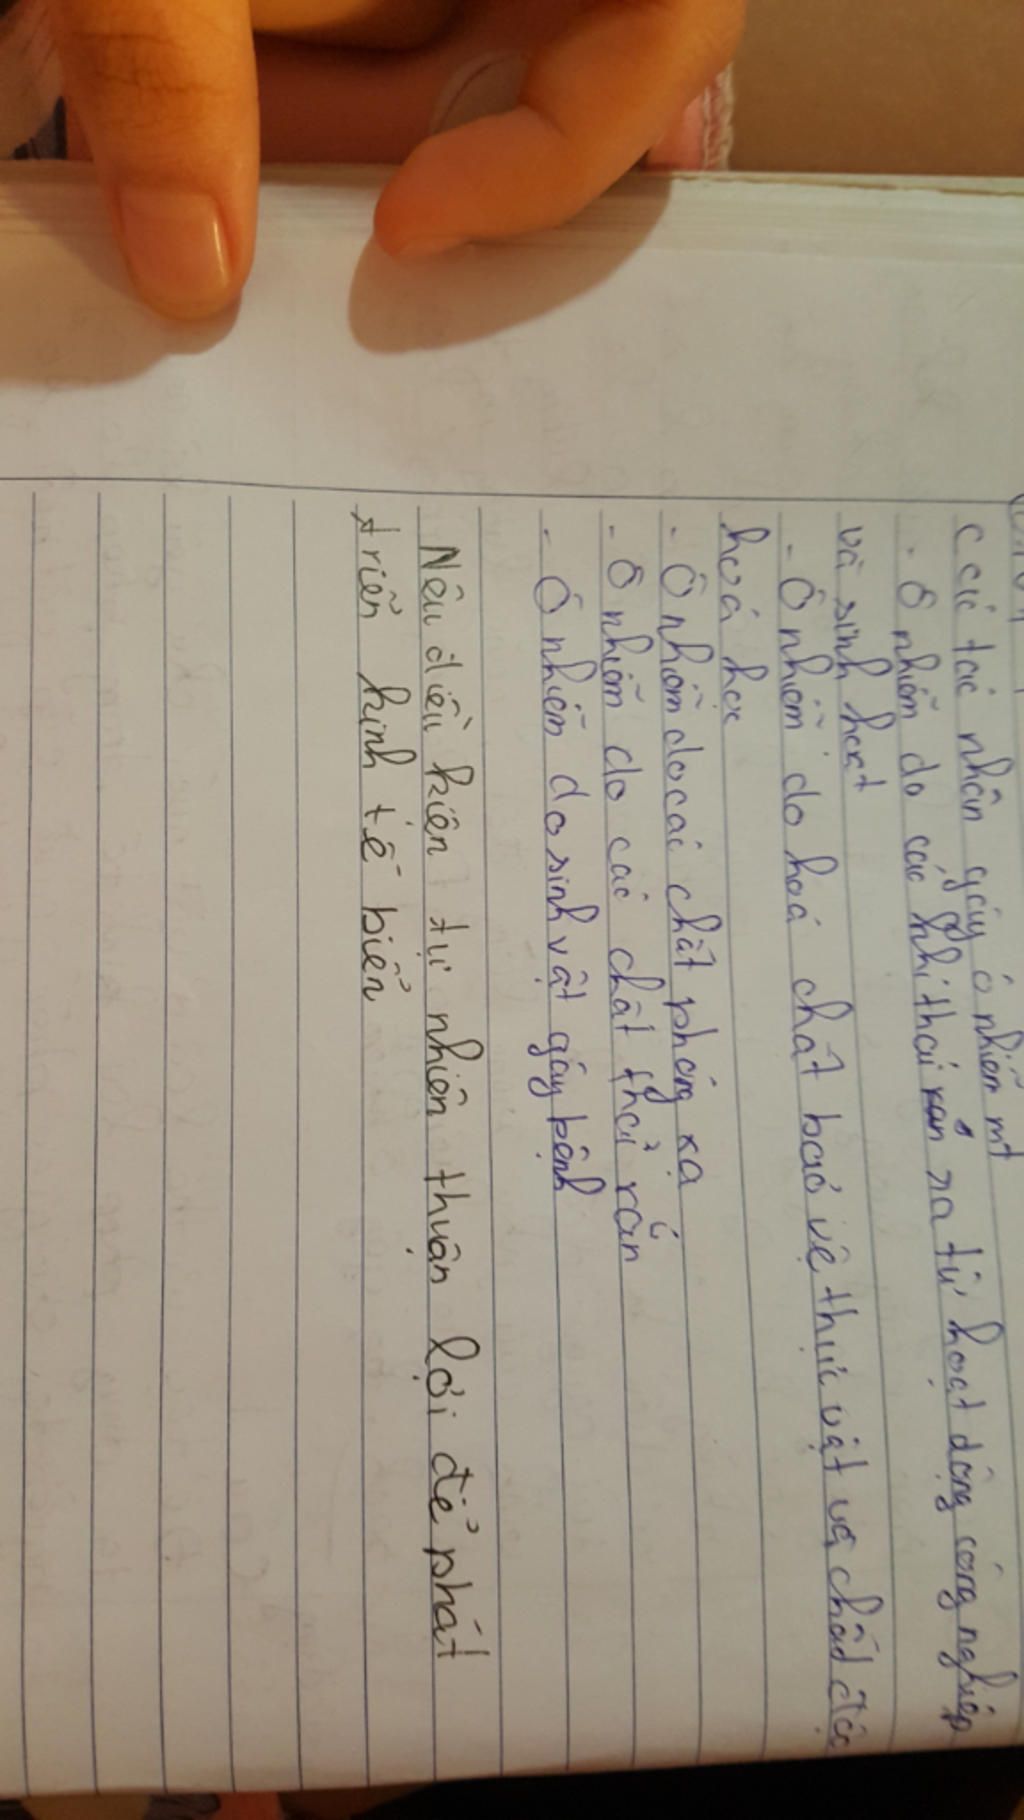 Các tác nhân gây ô nhiễm mt
- Ô nhiễm do các khí thải ra từ hoạt động công nghiệp
và sinh hoạt
- Ô nhiễm do hoá chất bảo vệ thực vật và chất độc
hoá học
- Ô nhiễm do các chất phóng xạ
- Ô nhiễm do các chất thải rắn
- Ô nhiễm do sinh vật gây bệnh
Nêu điều kiện tự nhiên thuận lợi để phát
triển kinh tế biển